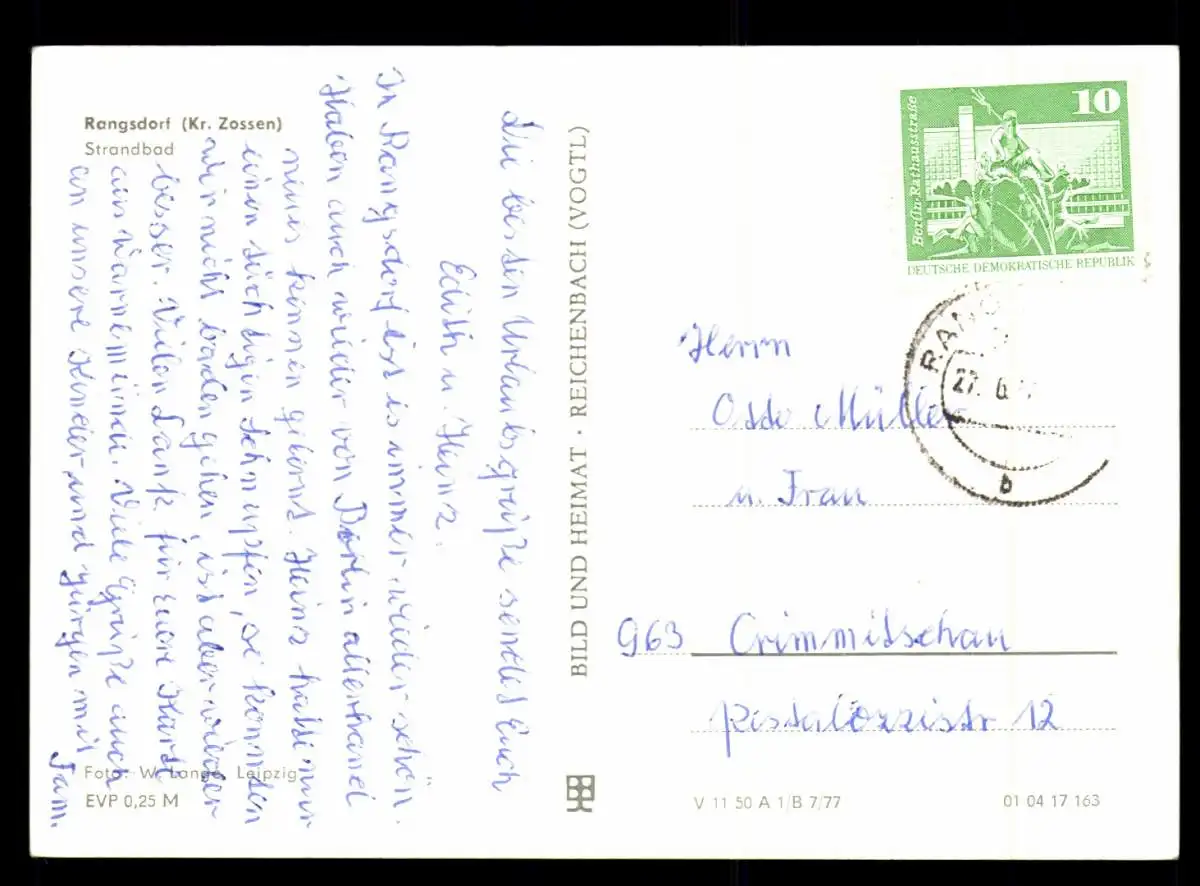 Rangsdorf (Kr. Zossen)
Strandbad
Die besten Urlaubsgrüße sendet Euch
Edith u. Heinz.
In Rangsdorf ist es immer wieder schön.
Haben auch wieder von Berlin allerhand
neues kennen gelernt. Heinz hatte nur
einen tüchtigen Schnupfen, so konnten
wir nicht baden gehen, ist aber wieder
besser. Vielen Dank für Eure Karte
aus Warnemünde. Viele Grüße auch
an unsere Kinder und Jürgen mit
Fam.
Foto: W. Lange, Leipzig
EVP 0,25 M
BILD UND HEIMAT · REICHENBACH (VOGTL)
10
Berlin-Rathausstraße
DEUTSCHE DEMOKRATISCHE REPUBLIK
27. 6.
b
Herrn
Otto Müller
u. Frau
963 Crimmitschau
Pestalozzistr 12
V 11 50 A 1/B 7/77
01 04 17 163